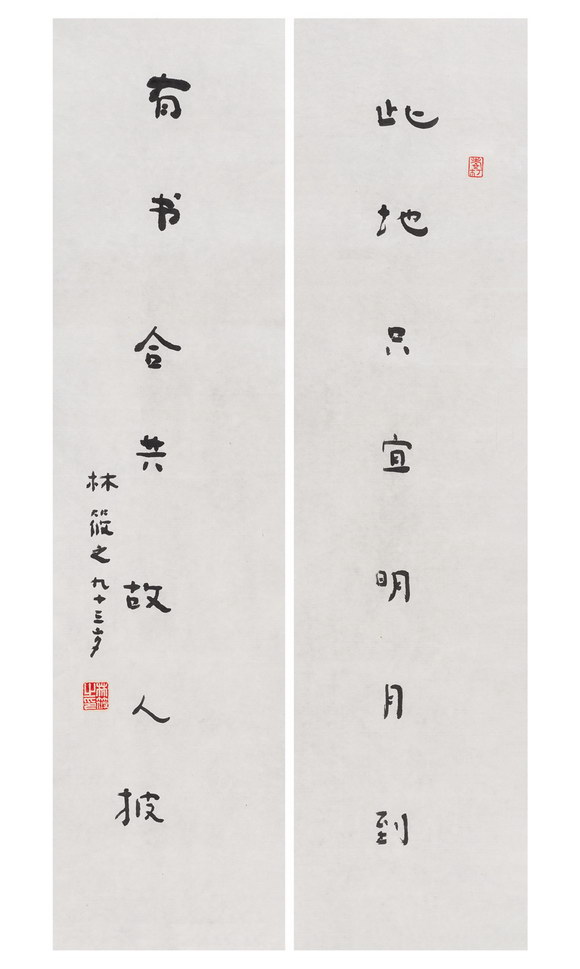 此地只宜明月到
有书合共故人披
林筱之九十三岁